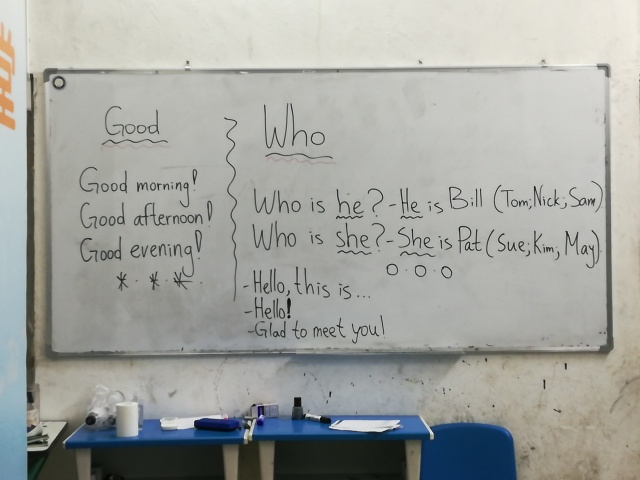 Good
Good morning!
Good afternoon!
Good evening!
Who
Who is he? - He is Bill (Tom; Nick; Sam)
Who is she? - She is Pat (Sue; Kim, May)
- Hello, this is...
- Hello!
- Glad to meet you!